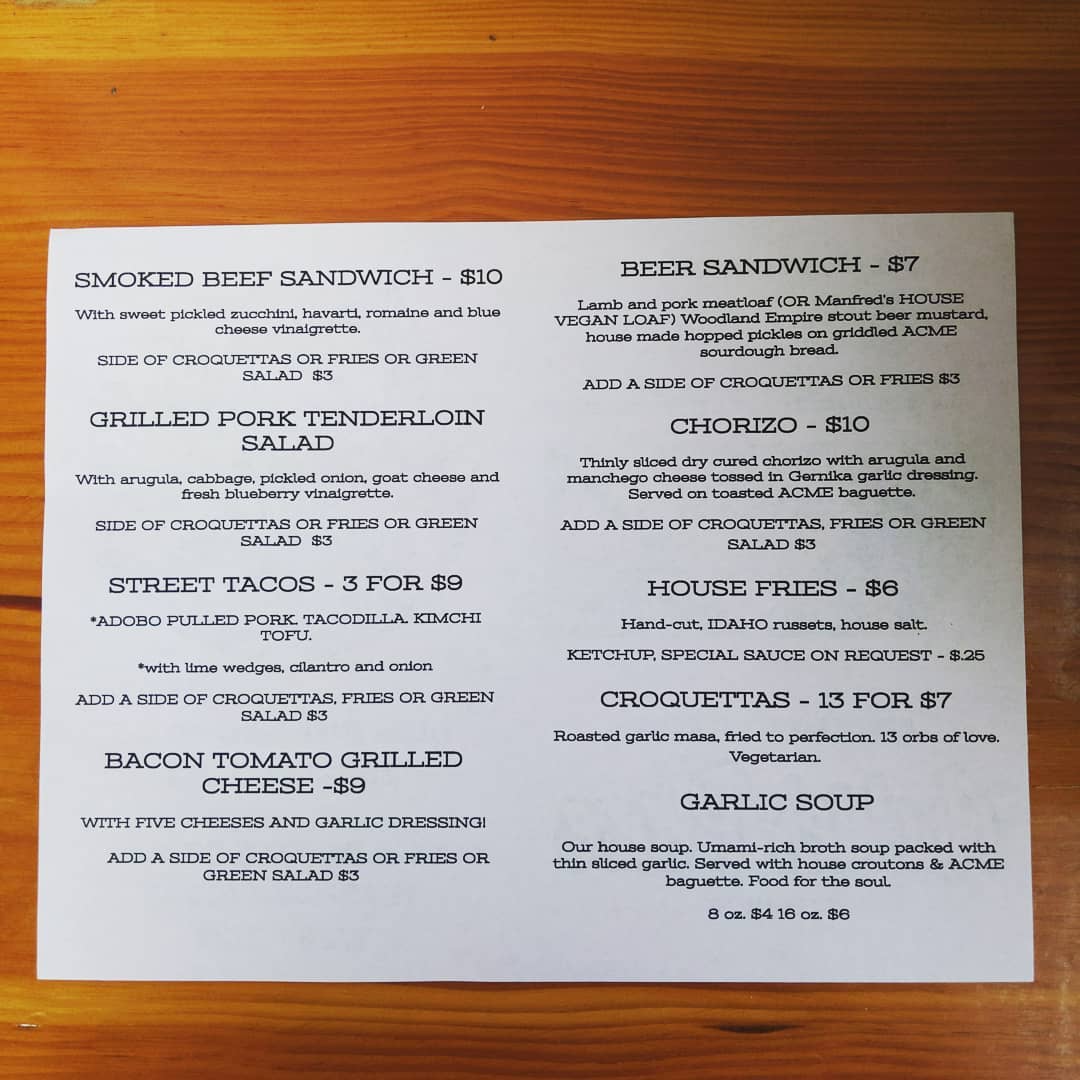 SMOKED BEEF SANDWICH - $10
With sweet pickled zucchini, havarti, romaine and blue
cheese vinaigrette.
SIDE OF CROQUETTAS OR FRIES OR GREEN
SALAD $3
GRILLED PORK TENDERLOIN
SALAD
With arugula, cabbage, pickled onion, goat cheese and
fresh blueberry vinaigrette.
SIDE OF CROQUETTAS OR FRIES OR GREEN
SALAD $3
STREET TACOS - 3 FOR $9
*ADOBO PULLED PORK. TACODILLA. KIMCHI
TOFU.
*with lime wedges, cilantro and onion
ADD A SIDE OF CROQUETTAS, FRIES OR GREEN
SALAD $3
BACON TOMATO GRILLED
CHEESE -$9
WITH FIVE CHEESES AND GARLIC DRESSING!
ADD A SIDE OF CROQUETTAS OR FRIES OR
GREEN SALAD $3
BEER SANDWICH - $7
Lamb and pork meatloaf (OR Manfred's HOUSE
VEGAN LOAF) Woodland Empire stout beer mustard,
house made hopped pickles on griddled ACME
sourdough bread.
ADD A SIDE OF CROQUETTAS OR FRIES $3
CHORIZO - $10
Thinly sliced dry cured chorizo with arugula and
manchego cheese tossed in Gernika garlic dressing.
Served on toasted ACME baguette.
ADD A SIDE OF CROQUETTAS, FRIES OR GREEN
SALAD $3
HOUSE FRIES - $6
Hand-cut, IDAHO russets, house salt.
KETCHUP, SPECIAL SAUCE ON REQUEST - $.25
CROQUETTAS - 13 FOR $7
Roasted garlic masa, fried to perfection. 13 orbs of love.
Vegetarian.
GARLIC SOUP
Our house soup. Umami-rich broth soup packed with
thin sliced garlic. Served with house croutons & ACME
baguette. Food for the soul.
8 oz. $4 16 oz. $6